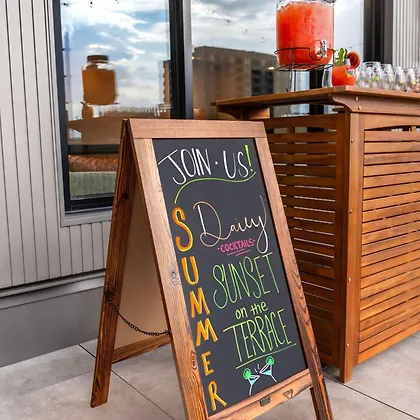 JOIN · US!
SUMMER
Daily
- COCKTAILS -
SUNSET
on the
TERRACE